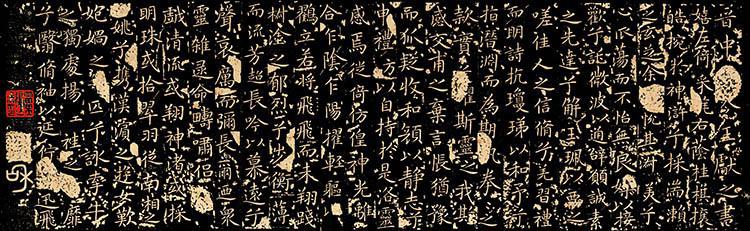 晉中書令王獻之書
嬉左倚采旄右蔭桂旗攘
皓捥於神滸兮採湍瀨
之玄芝余情悅其淑美兮
心振蕩而不怡無良媒以接
歡兮託微波以通辭願誠素
之先達兮解玉珮以要之
嗟佳人之信脩兮羌習禮
而明詩抗瓊珶以和予兮
指潛淵而為期執拳拳之
款實兮懼斯靈之我欺
感交甫之棄言悵猶豫
而狐疑收和顏以靜志兮
申禮防以自持於是洛靈
感焉徙倚仿偟神光離
合乍陰乍陽擢輕軀以
鶴立若將飛而未翔踐
椒塗之郁烈兮步衡薄
而流芳超長吟以慕遠兮
聲哀厲而彌長爾迺衆
靈雜遝命疇嘯侶或
戲清流或翔神渚或採
明珠或拾翠羽從南湘之
攜漢濱之遊女歎
媧之無匹兮詠牽牛
之獨處揚袿之猗靡
兮翳脩袖以延佇迅飛